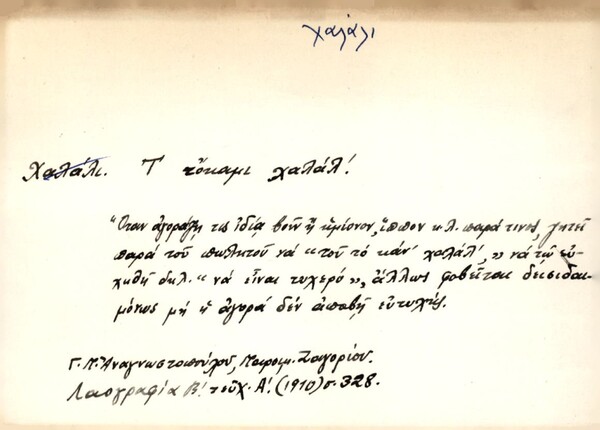 χαλάλι
Χαλάλι. Τ' τὄκαμι χαλάλ'!
"Ὅταν ἀγοράζῃ τις ἰδία βοῦν ἢ ἡμίονον, ἵππον κ.λ. παρά τινος, ζητεῖ
παρὰ τοῦ πωλητοῦ νὰ "τοῦ τὸ κάν' χαλάλ'," νὰ τῷ εὐ-
χηθῇ δηλ. "νὰ εἶναι τυχερό", ἄλλως φοβεῖται δεισιδαι-
μόνως μὴ ἡ ἀγορὰ δὲν ἀποβῇ εὐτυχής.
Γ. Π. Ἀναγνωστοπούλου, Ζαγορίου.
Λαογραφία Β! τεῦχ. Α! (1910) σ. 328.